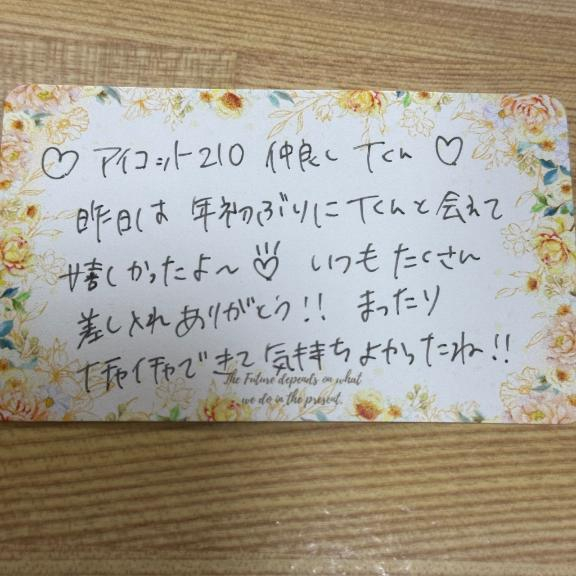 ♡ アイコット210 仲良し Tくん ♡
昨日は 年初ぶりに Tくんと 会えて
嬉しかったよ〜♡ いつも たくさん
差し入れ ありがとう!! まったり
イチャイチャできて 気持ち よかったね!!
The Future depends on what
we do in the present.